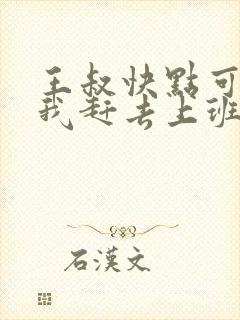 王叔快點可
我赶去上班
石漢文